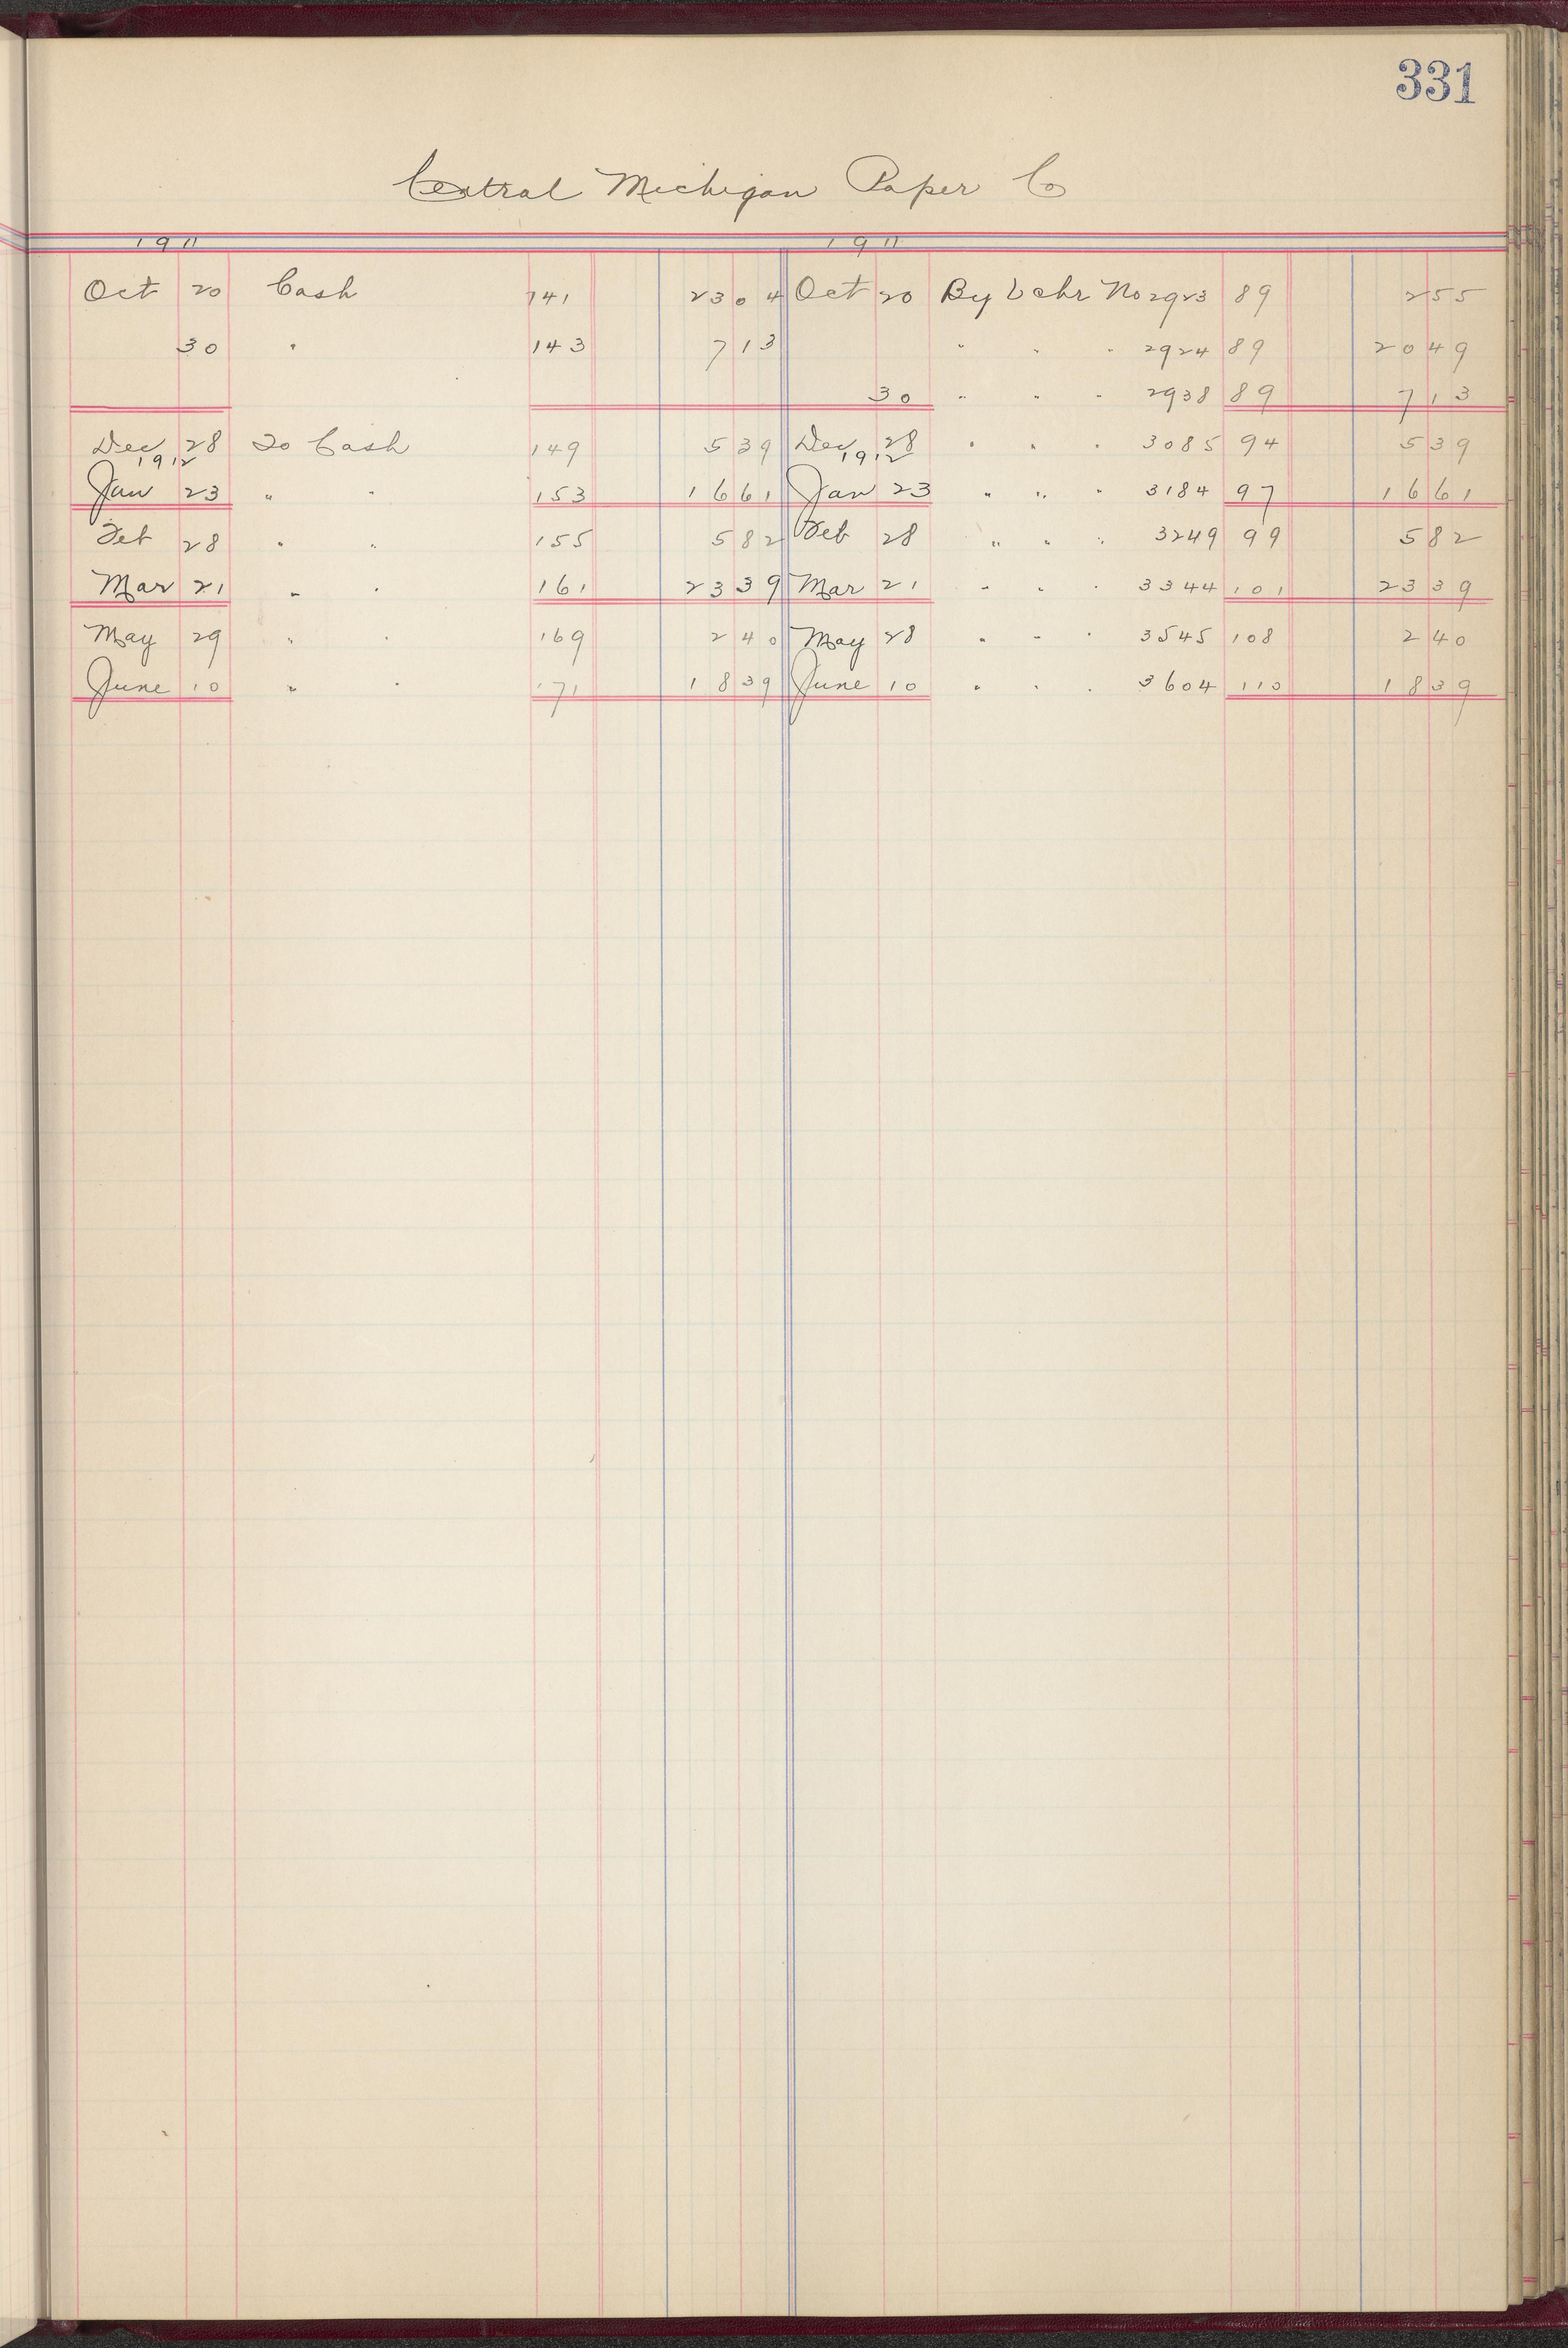 331
Central Michigan Paper Co
1911 1911
Oct 20 Cash 141 2304 Oct 20 By Vchr No 2923 89 255
30 " 143 713 " " " 2924 89 2049
30 " " " 2938 89 713
Dec 28 To Cash 149 539 Dec 28 " " " 3085 94 539
1912 1912
Jan 23 " " 153 1661 Jan 23 " " " 3184 97 1661
Feb 28 " " 155 582 Feb 28 " " " 3249 99 582
Mar 21 " " 161 2339 Mar 21 " " " 3344 101 2339
May 29 " " 169 240 May 28 " " " 3545 108 240
June 10 " " 171 1839 June 10 " " " 3604 110 1839